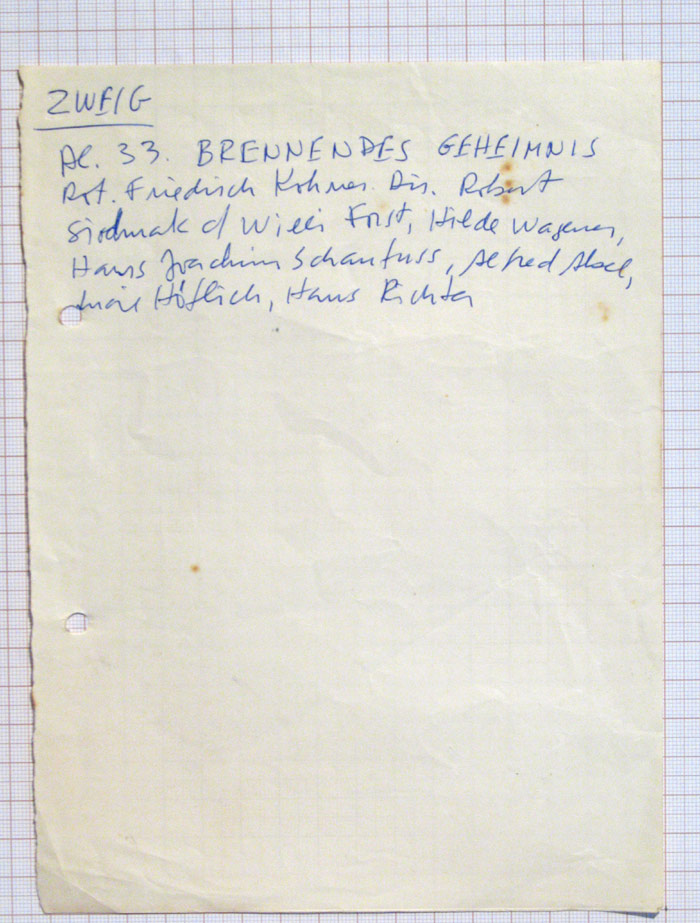 ZWEIG
Al. 33. BRENNENDES GEHEIMNIS
Rot. Friedrich Kohner. Dir. Robert
Siodmak c/ Willi Forst, Hilde Wagener,
Hans Joachim Schaufuss, Alfred Abel,
Höflich, Hans Richter